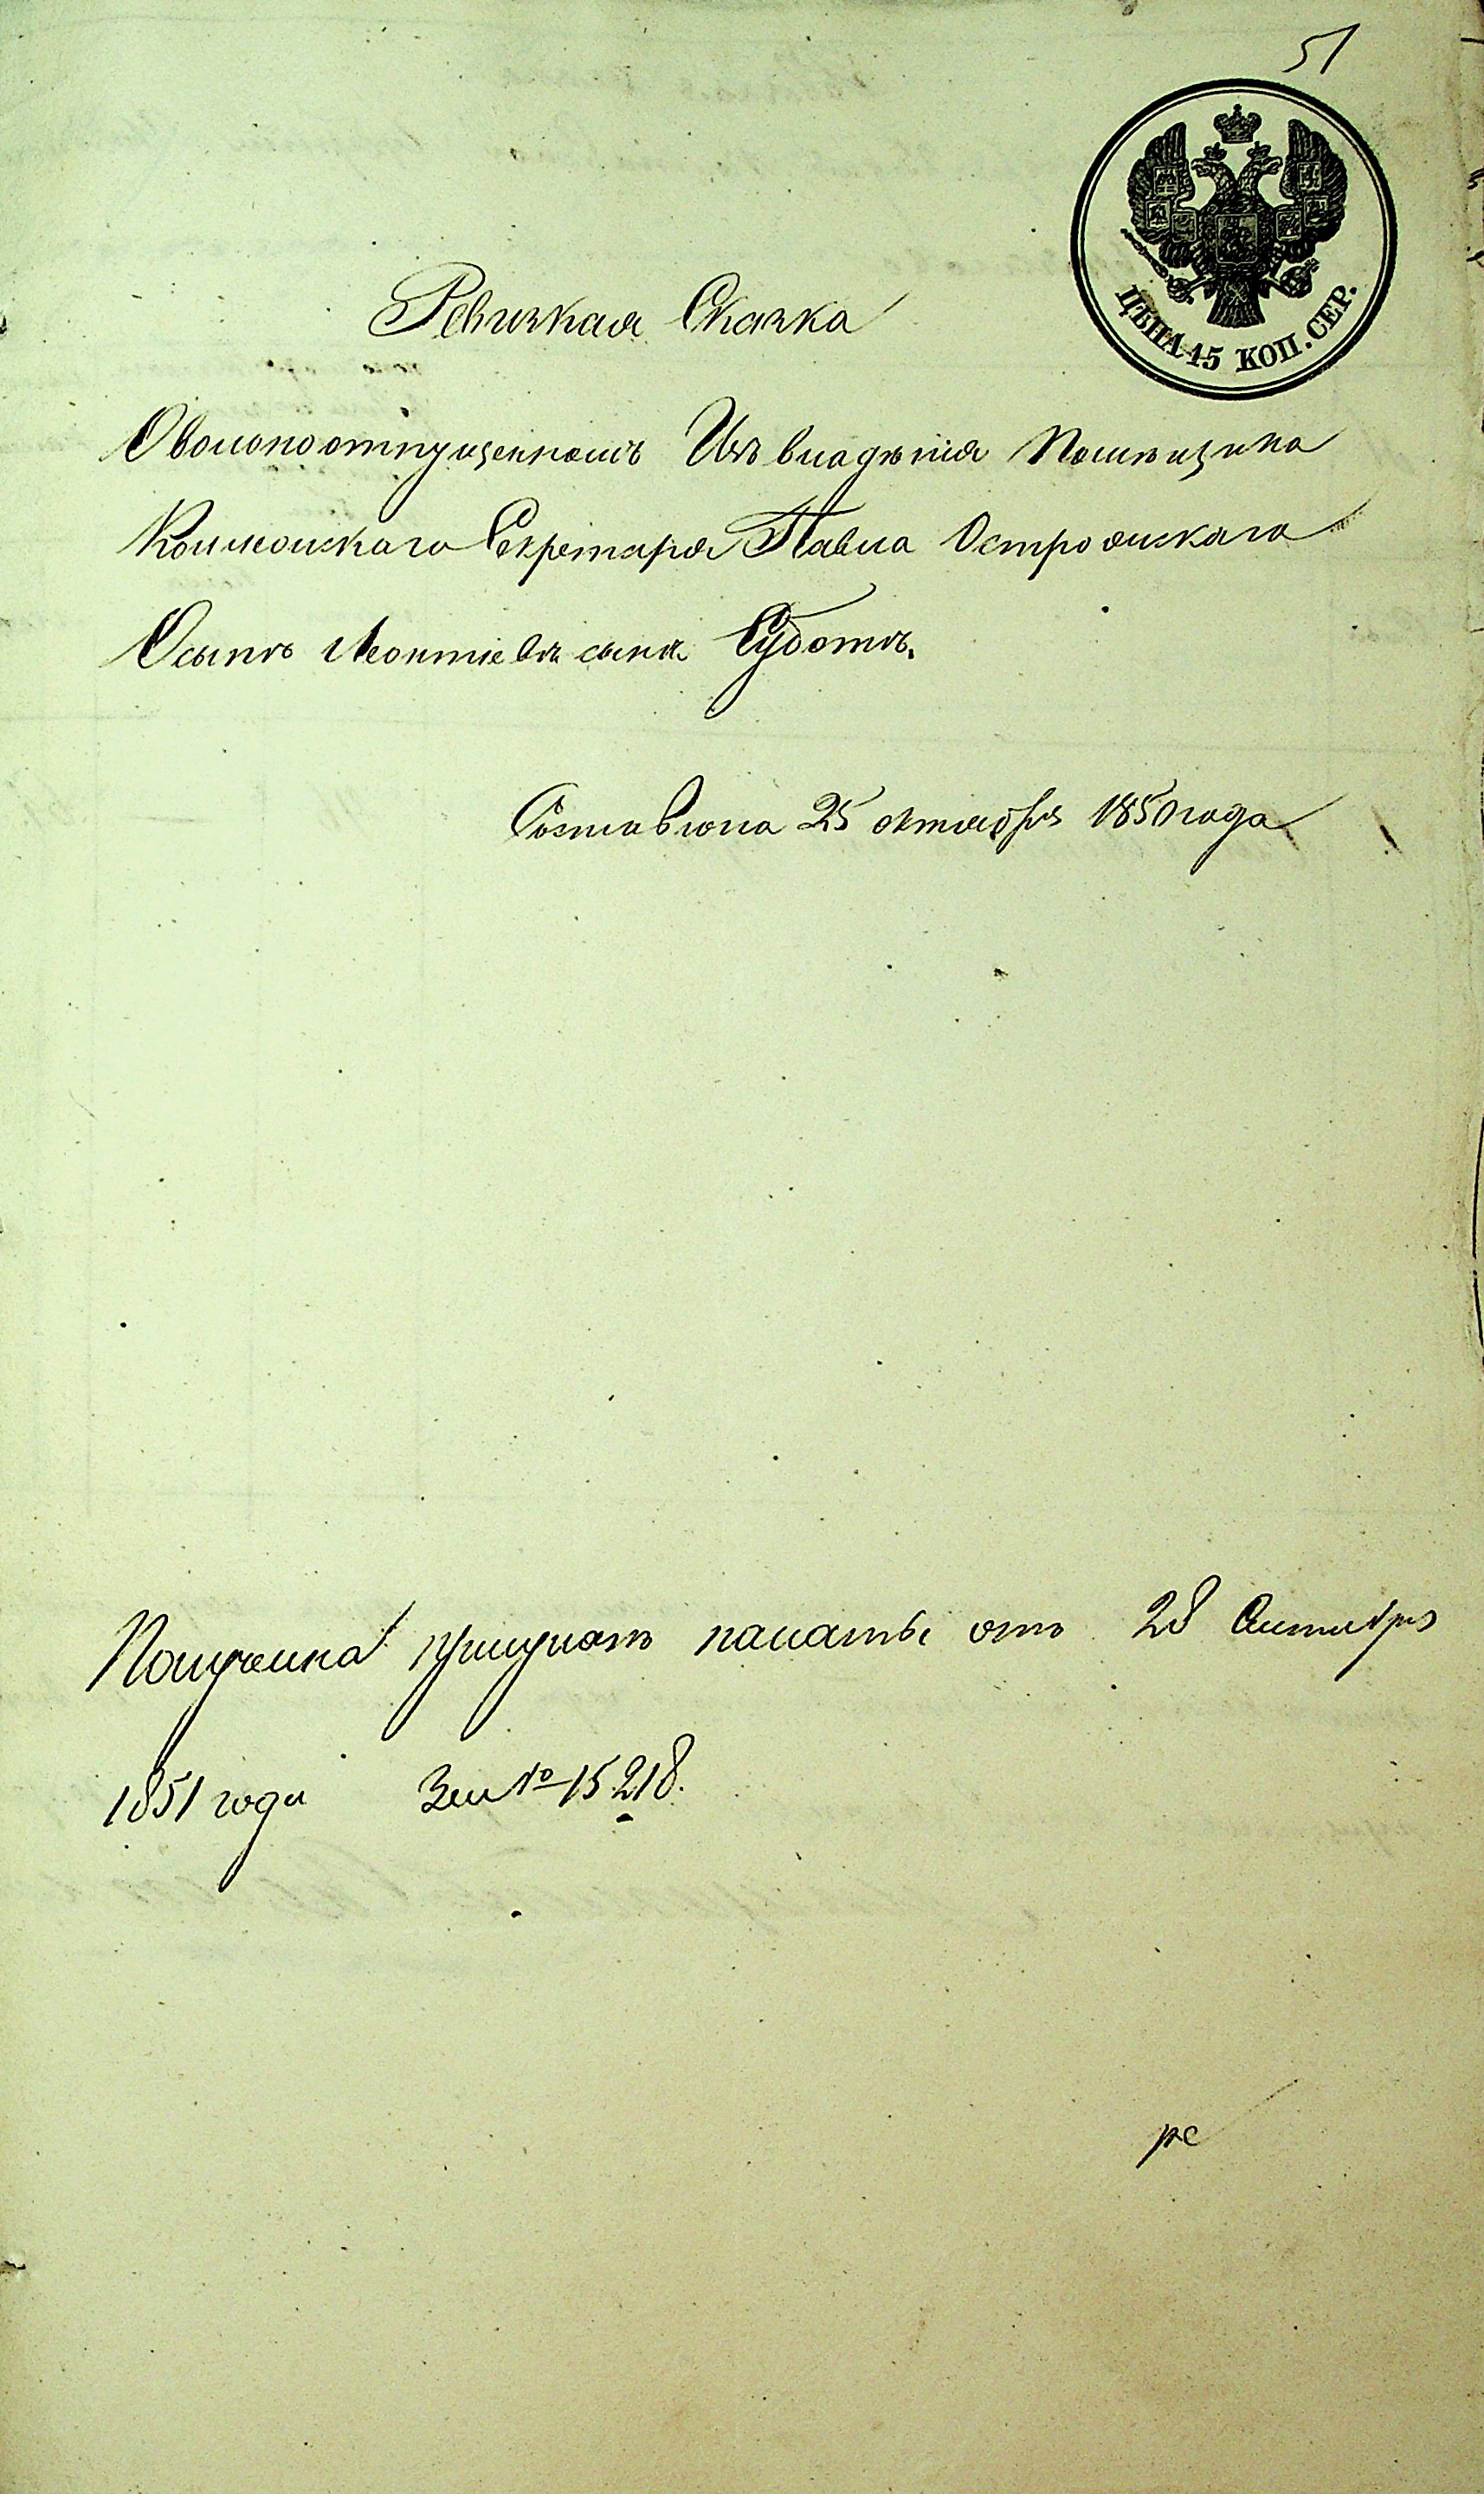 51
ЦѢНА 15 КОП. СЕР.
Ревизкая Сказка
Овольноотпущенномъ Изъ владѣнія Помѣщика
Коллежскаго Секретаря Павла
Осыпѣ Леонтіевѣ сынѣ Суботѣ.
Составлена 25 октября 1850 года
Получена при палаты отъ 28
1851 года За № 15218.